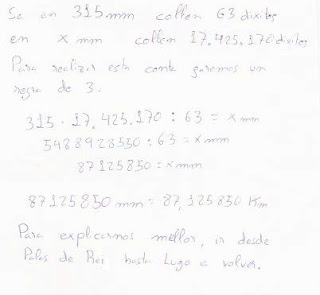 Se en 315 mm collen 63 díxitos
en x mm collen 17.425.170 díxitos
Para realizar esta conta faremos un
regra de 3.
315 · 17.425.170 : 63 = x mm
5488928550 : 63 = x mm
87125850 = x mm
87125850 mm = 87,125850 Km
Para explicarnos mellor, ir desde
Palas de Rei hasta Lugo e volver.